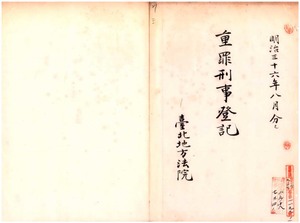 明治三十六年八月分
重罪刑事登記
臺北地方法院